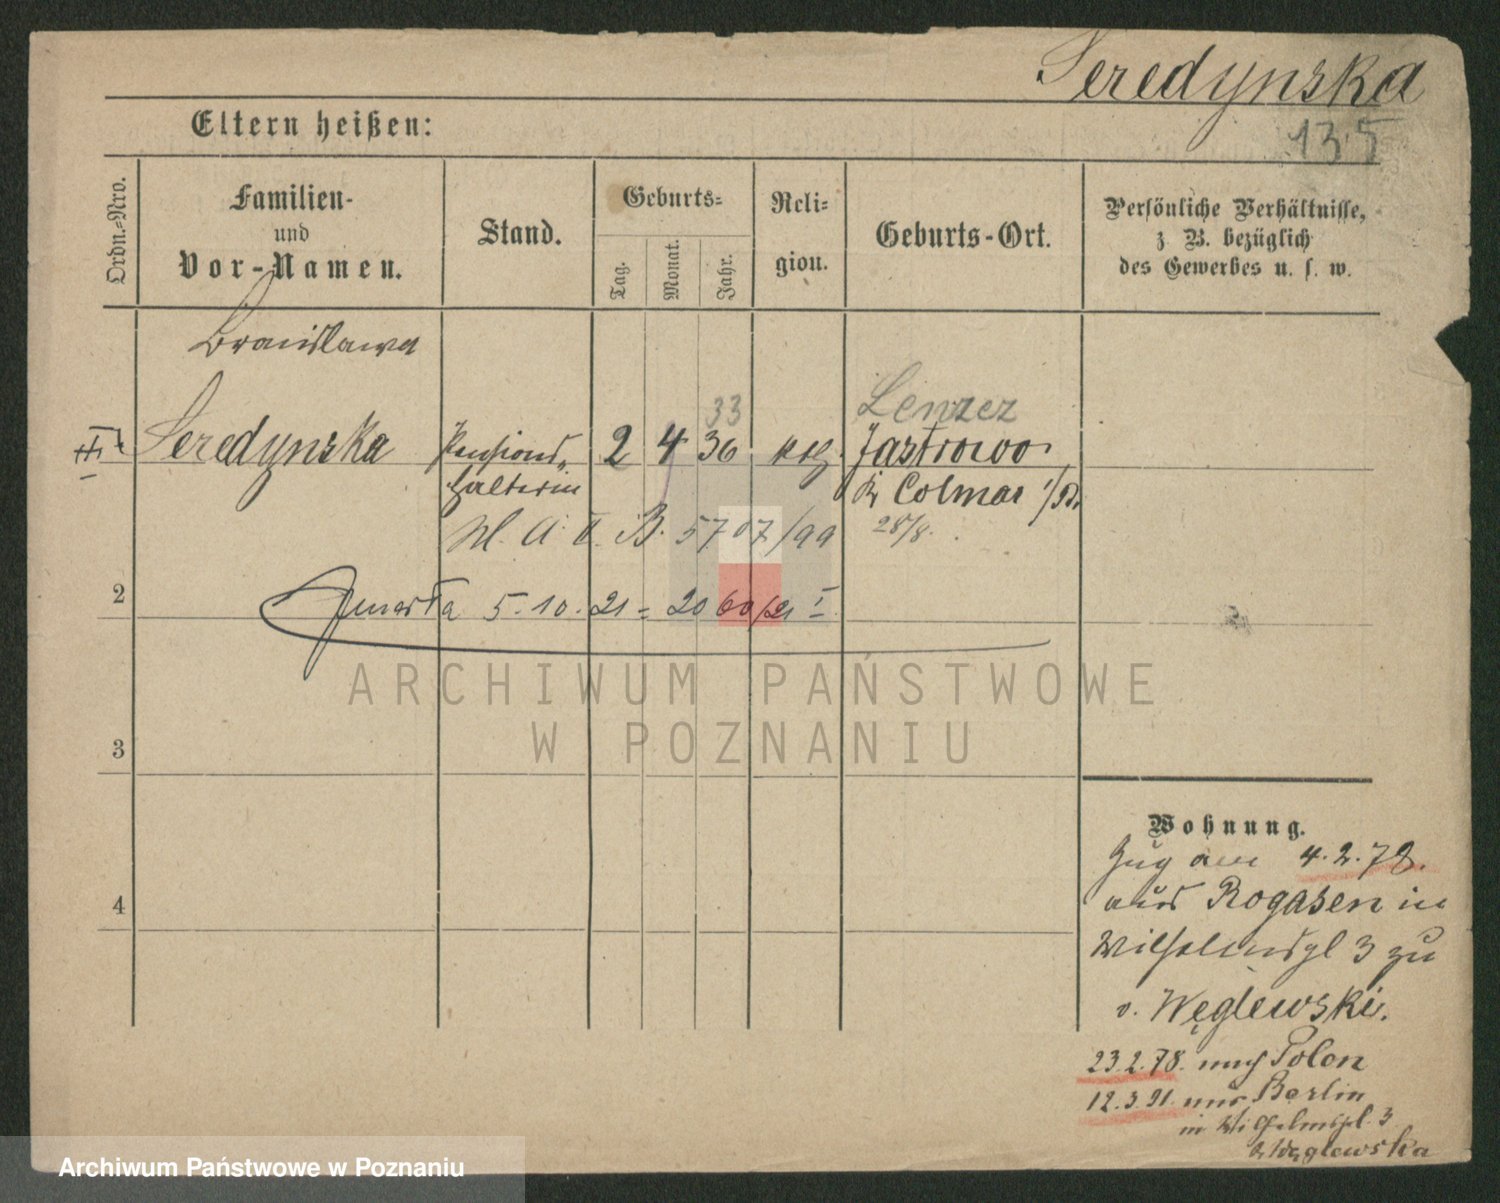 Seredynska
135
Eltern heißen:
Ordn.-Nro.
Familien-
und
Vor-Namen.
Stand.
Geburts-
Tag.
Monat.
Jahr.
Reli-
gion.
Geburts-Ort.
Persönliche Verhältnisse,
z B. bezüglich
des Gewerbes u. s. w.
Bronislawa
33
Lenzez
Seredynska Pensions- 2 4 36 kth Jastrowo
halterin Kr Colmar i/P.
B. 5707/99 28/8.
2
zmarła 5.10.21 = 2060/21 I
3
4
ARCHIWUM PAŃSTWOWE
W POZNANIU
Wohnung.
Zug am 4.2.78.
aus Rogasen in
Wilhelmspl 3 zu
v. Węglewski.
23.2.78. nach Polen
12.3.91. aus Berlin
in Wilhelmspl. 3
Węglewska
Archiwum Państwowe w Poznaniu